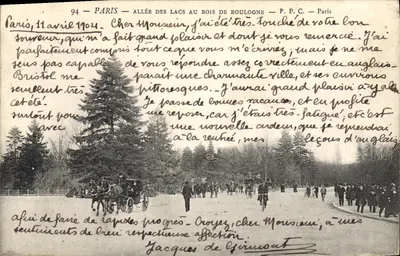 94 - PARIS - ALLÉE DES LACS AU BOIS DE BOULOGNE - P. P. C. - Paris
Paris, 11 avril 1904. Cher Monsieur, j'ai été très touché de votre bon
souvenir, qui m'a fait grand plaisir et dont je vous remercie. J'ai
parfaitement compris tout ce que vous m'écrivez, mais je ne me
sens pas capable de vous répondre assez correctement en anglais.
Bristol me parait une charmante ville, et ses environs
semblent très pittoresques. J'aurai grand plaisir à y aller
cet été. Je passe de bonnes vacances, et en profite
surtout pour me reposer, car j'étais très fatigué, et c'est
avec une nouvelle ardeur, que je reprendrai
à la rentrée, mes leçons d'anglais
afin de faire de rapides progrès. Croyez, cher Monsieur, à mes
sentiments de bien respectueuse affection.
Jacques de